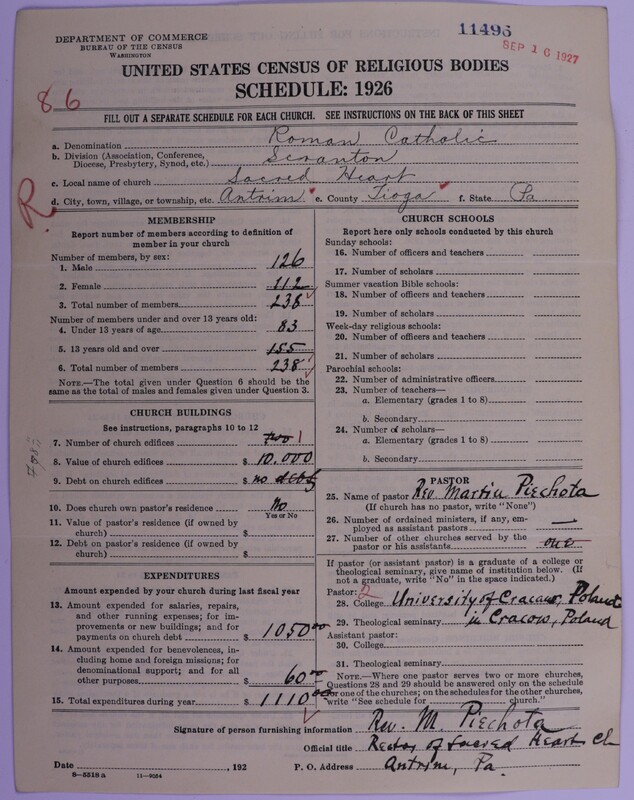 DEPARTMENT OF COMMERCE
BUREAU OF THE CENSUS
WASHINGTON
11495
SEP 16 1927
UNITED STATES CENSUS OF RELIGIOUS BODIES
SCHEDULE: 1926
86
FILL OUT A SEPARATE SCHEDULE FOR EACH CHURCH. SEE INSTRUCTIONS ON THE BACK OF THIS SHEET
a. Denomination Roman Catholic
b. Division (Association, Conference, Diocese, Presbytery, Synod, etc.) Scranton
c. Local name of church Sacred Heart
d. City, town, village, or township, etc. Antrim e. County Tioga f. State Pa
R
MEMBERSHIP
Report number of members according to definition of
member in your church
Number of members, by sex:
1. Male 126
2. Female 112
3. Total number of members 238
Number of members under and over 13 years old:
4. Under 13 years of age 83
5. 13 years old and over 155
6. Total number of members 238
NOTE.—The total given under Question 6 should be
same as the total of males and females given under Question 3.
CHURCH BUILDINGS
See instructions, paragraphs 10 to 12
7. Number of church edifices two 1
8. Value of church edifices $ 10.000
9. Debt on church edifices $ no debts
10. Does church own pastor's residence No
Yes or No
11. Value of pastor's residence (if owned by
church) $
12. Debt on pastor's residence (if owned by
church) $
EXPENDITURES
Amount expended by your church during last fiscal year
13. Amount expended for salaries, repairs,
and other running expenses; for im-
provements or new buildings; and for
payments on church debt $ 1050 00
14. Amount expended for benevolences, in-
cluding home and foreign missions; for
denominational support; and for all
other purposes $ 60 00
15. Total expenditures during year $ 1110 00
CHURCH SCHOOLS
Report here only schools conducted by this church
Sunday schools:
16. Number of officers and teachers
17. Number of scholars
Summer vacation Bible schools:
18. Number of officers and teachers
19. Number of scholars
Week-day religious schools:
20. Number of officers and teachers
21. Number of scholars
Parochial schools:
22. Number of administrative officers
23. Number of teachers—
a. Elementary (grades 1 to 8)
b. Secondary
24. Number of scholars—
a. Elementary (grades 1 to 8)
b. Secondary
PASTOR
25. Name of pastor Rev. Martin Piechota
(If church has no pastor, write "None")
26. Number of ordained ministers, if any, em-
ployed as assistant pastors —
27. Number of other churches served by the
pastor or his assistants one
If pastor (or assistant pastor) is a graduate of a college or
theological seminary, give name of institution below. (If
not a graduate, write "No" in the space indicated.)
Pastor: 2
28. College University of Cracow, Poland
29. Theological seminary in Cracow, Poland
Assistant pastor:
30. College
31. Theological seminary
NOTE.—Where one pastor serves two or more churches,
Questions 28 and 29 should be answered only on the schedule
for one of the churches; on the schedules for the other churches,
write "See schedule for church."
Signature of person furnishing information Rev. M. Piechota
Official title Rector of Sacred Heart Ch
Date , 192 P. O. Address Antrim, Pa.
8—5518 a 11—9054